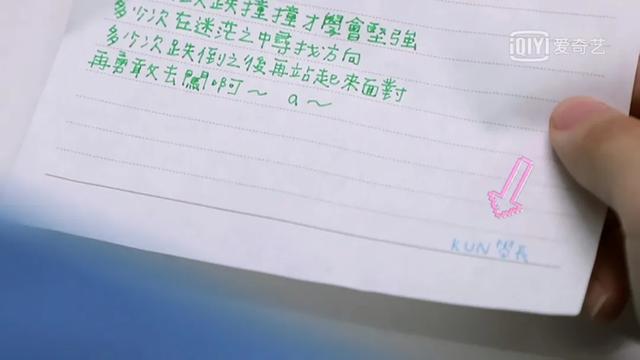 iQIYI 爱奇艺
多少次跌跌撞撞才學會堅強
多少次在迷茫之中尋找方向
多少次跌倒之後再站起來面對
再勇敢去闖啊～ a～
KUN 學長